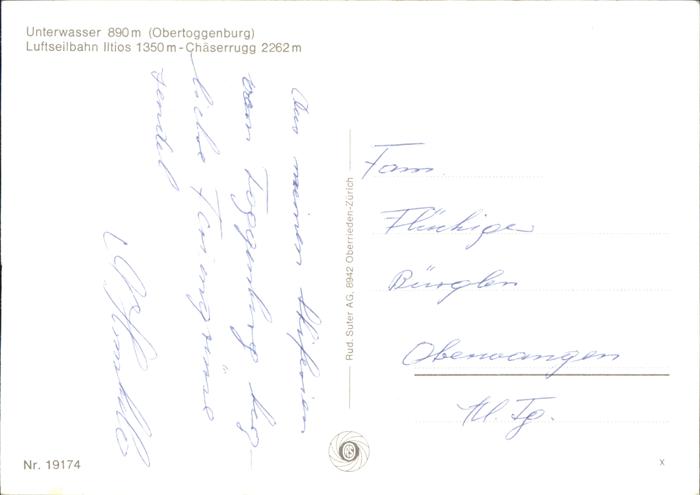 Unterwasser 890 m (Obertoggenburg)
Luftseilbahn Iltios 1350 m - Chäserrugg 2262 m
Aus meinen Skiferien
vom Toggenburg
liebe Feriengrüsse
sendet
Rud. Suter AG, 8942 Oberrieden-Zürich
Fam.
Flückiger
Bürglen
Oberwangen
Kt. Tg.
Nr. 19174
x